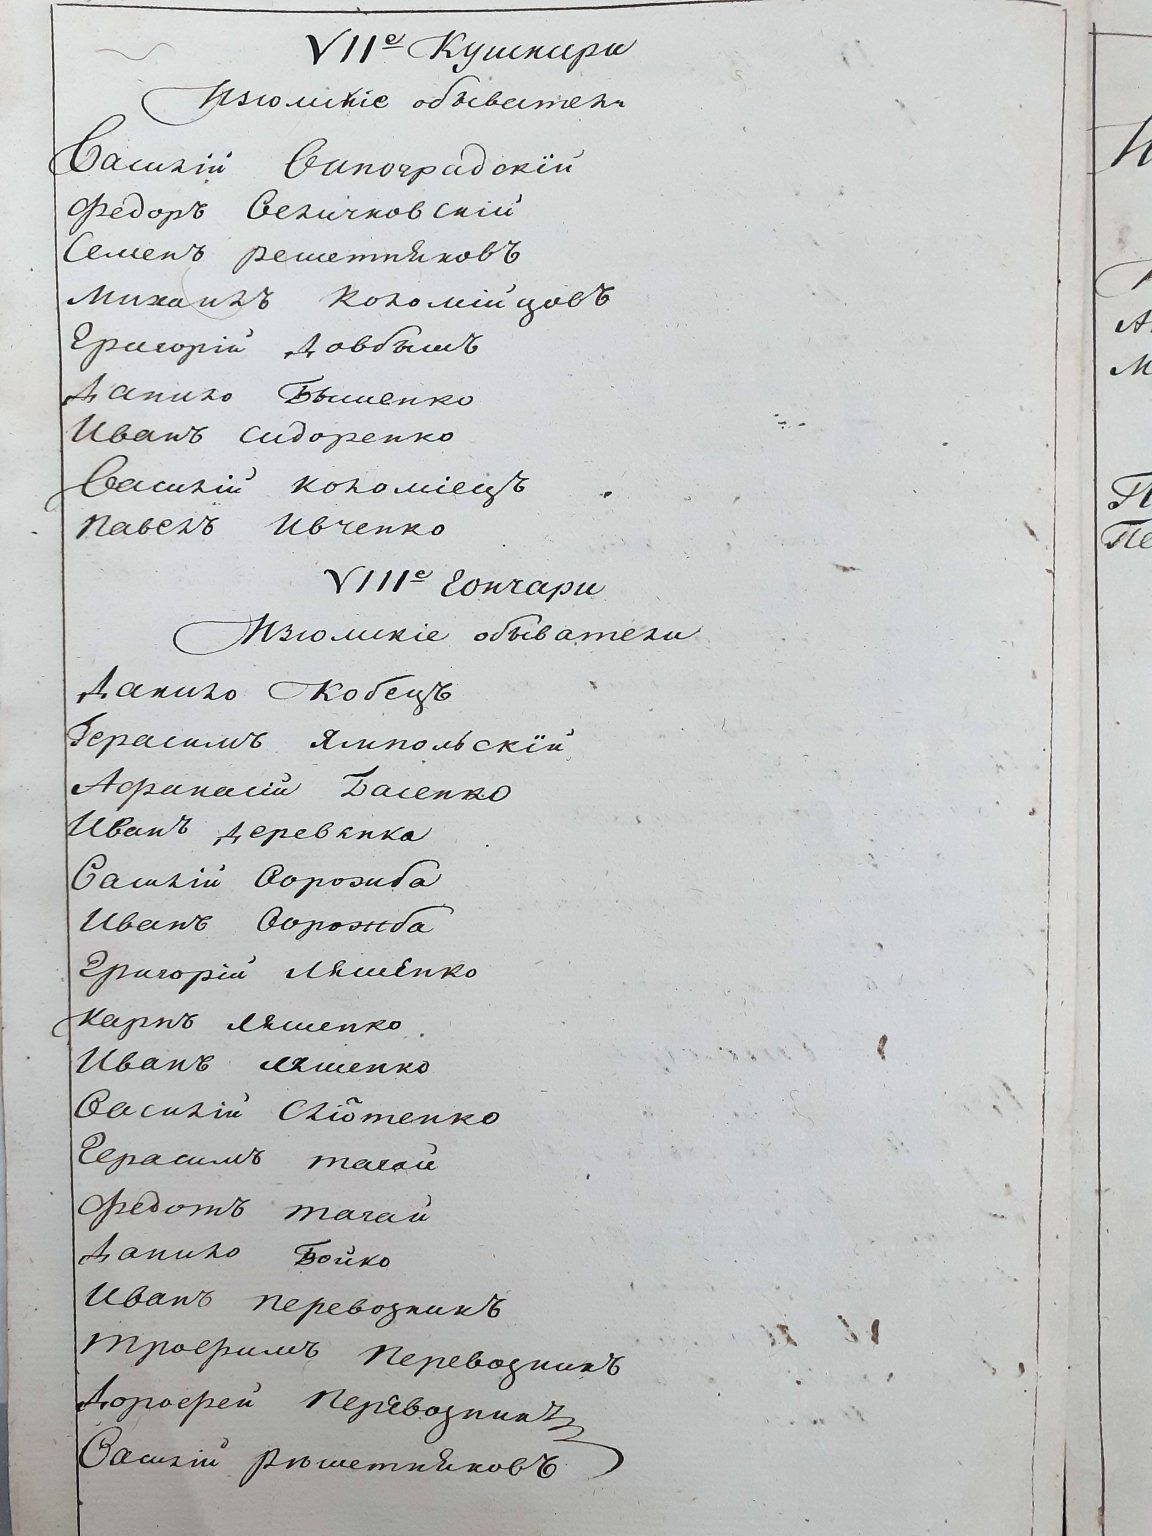 VIIе Кушнири
Изюмскіе обыватели
Василій Виноградскій
Федоръ Величковскій
Семенъ Решетняковъ
Михаилъ Коломійцовъ
Григорій Довбышъ
Данило Бышенко
Иванъ Сидоренко
Василій Коломіецъ
Павелъ Ивченко
VIIIе Гончари
Изюмскіе обыватели
Данило Кобецъ
Герасимъ Ямпольскій
Афанасій Басенко
Иванъ Деревянка
Василій Ворожба
Иванъ Ворожба
Григорій Ляшенко
Карпъ Ляшенко
Иванъ Ляшенко
Василій
Герасимъ Тагай
Федотъ Тагай
Данило Бойко
Иванъ Перевозникъ
Трофимъ Перевозникъ
Дорофей Перевозникъ
Василій Решетняковъ